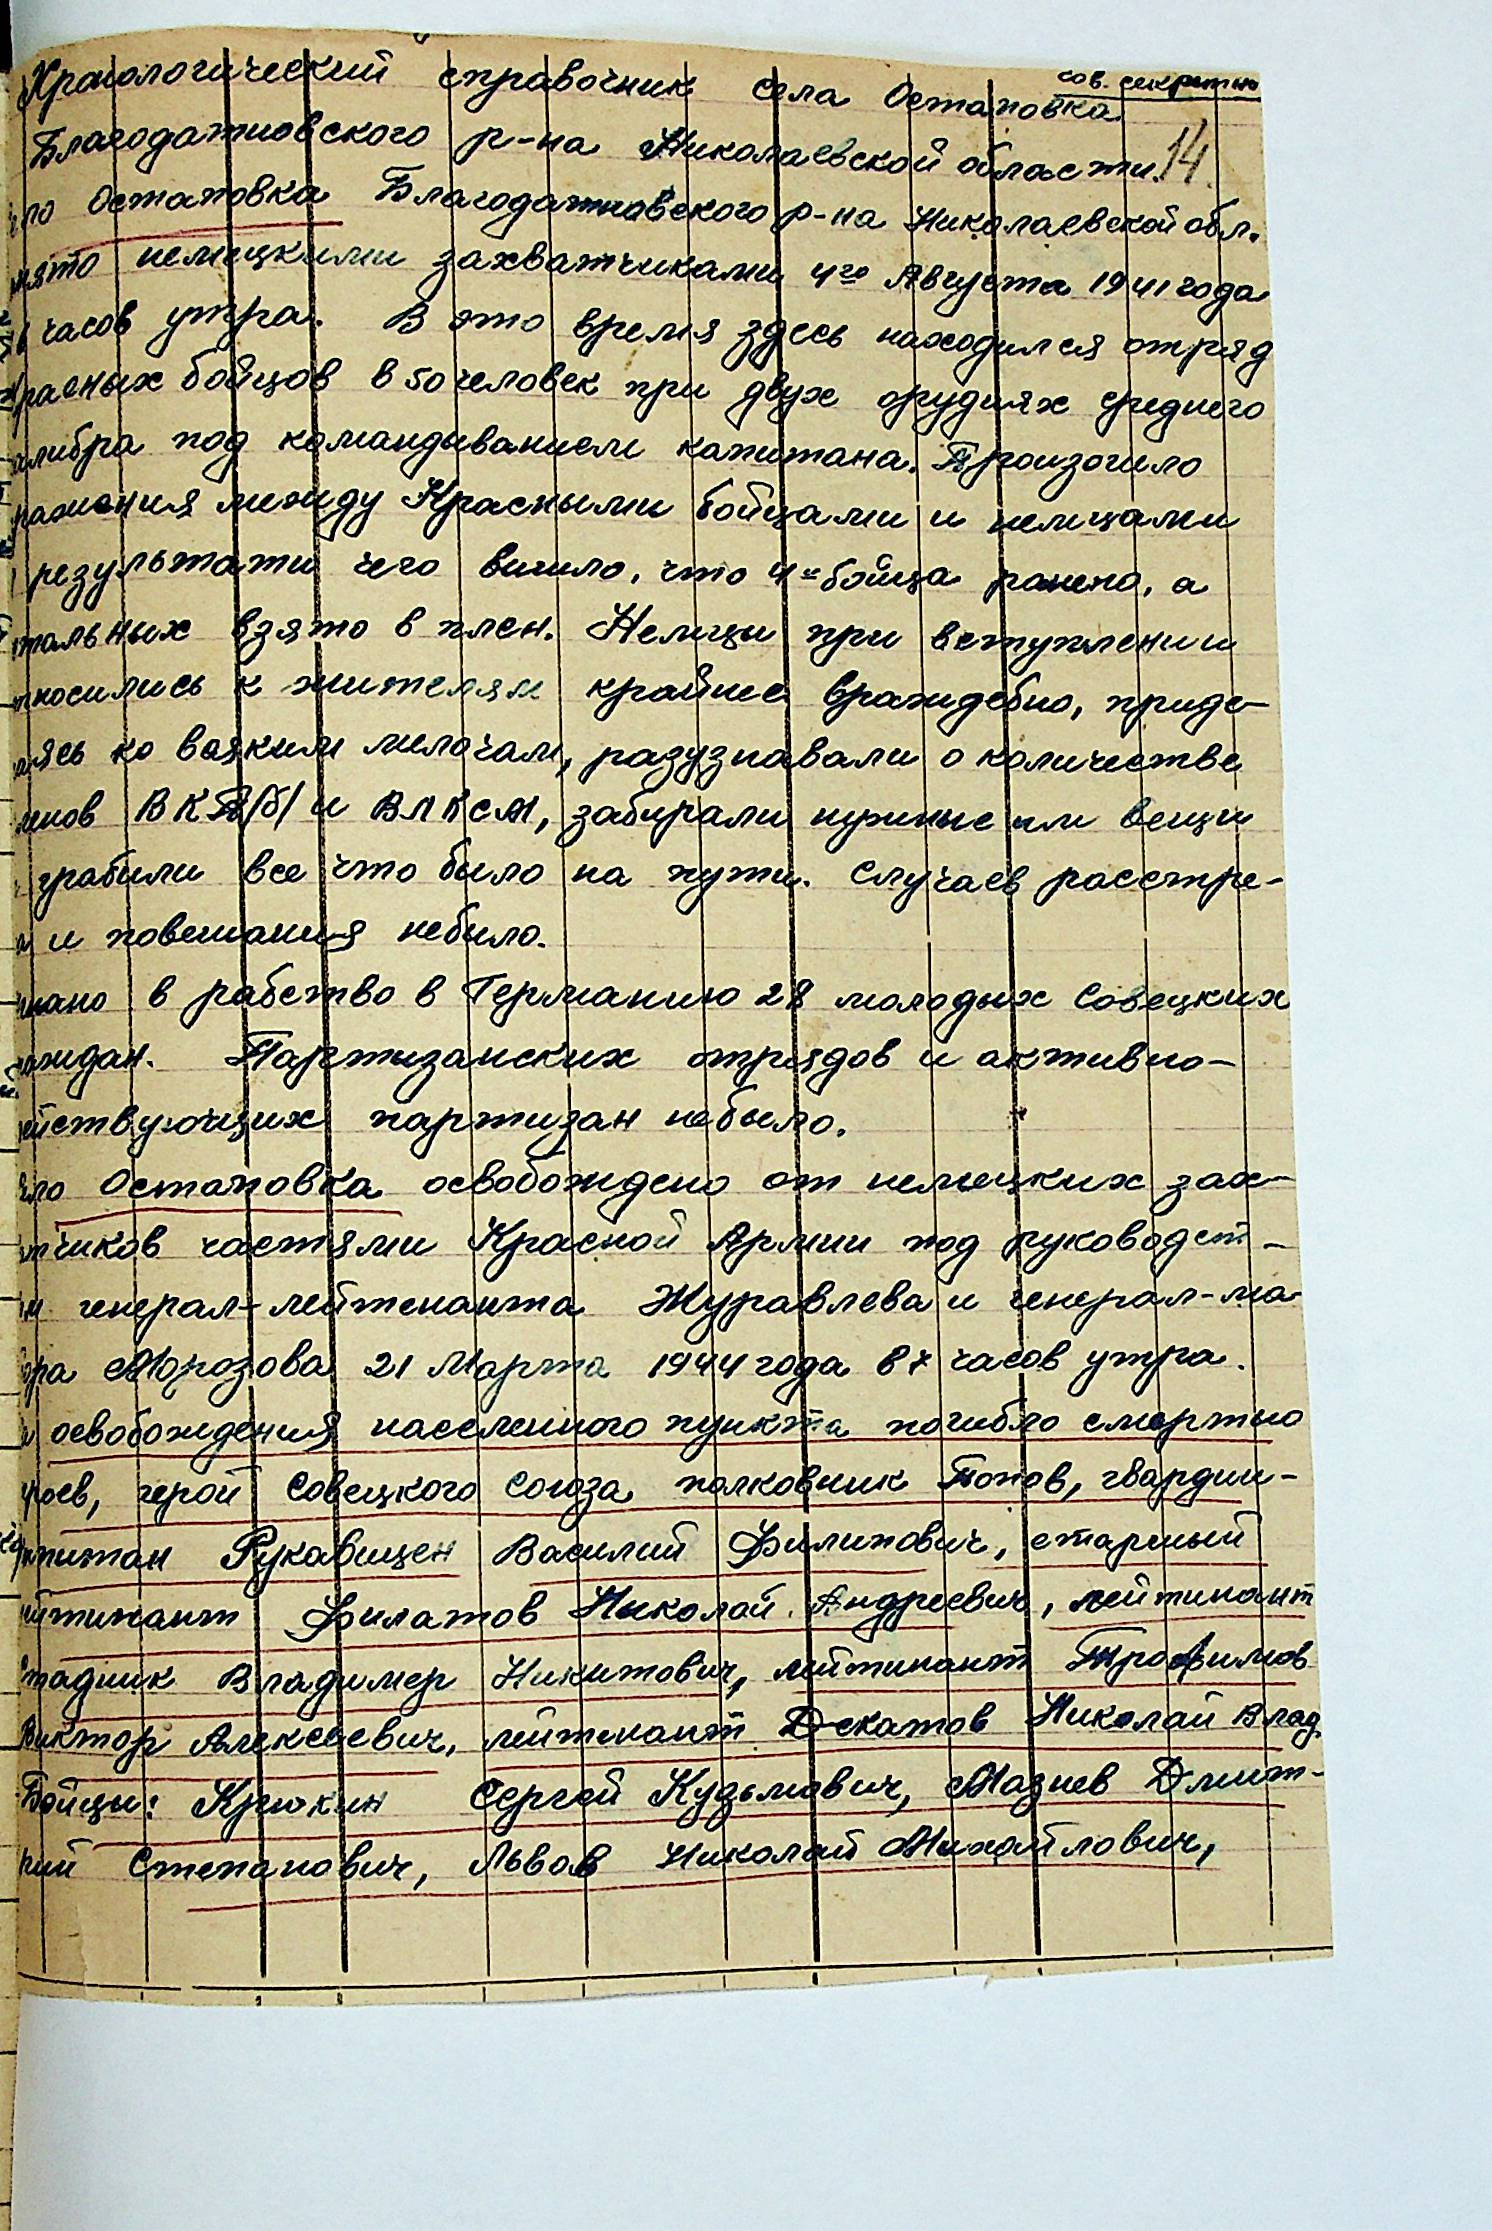 сов. секретно
Хронологический справочник села Остаповка
Благодатновского р-на Николаевской области. 14.
ло Остаповка Благодатновского р-на Николаевской обл.
нято немецкими захватчиками 4го Августа 1941 года
часов утра. В это время здесь находился отряд
расных бойцов в 50 человек при двух орудиях среднего
алибра под командыванием капитана. Произошло
ражения между Красными бойцами и немцами
результати чего вишло, что 4м бойца ранено, а
тальных взято в плен. Немцы при вступлении
тносились к жителям крайне враждебно, приде-
аясь ко всяким мелочам, разузнавали о количестве
ленов ВКП/б/ и ВЛКСМ, забирали нужные им вещи
грабили все что было на пути. Случаев расстре-
а и повешания небыло.
нано в рабство в Германию 28 молодых Совецких
раждан. Партизанских отрядов и активно-
ействующих партизан небыло.
ло Остаповка освобождено от немецких зах-
атчиков частями Красной Армии под руководст-
м генерал-лейтенанта Журавлева и генерал-ма-
ора Морозова 21 Марта 1944 года в 7 часов утра.
освобождения населенного пункта погибло смертю
роев, герой Совецкого Союза полковник Попов, гвардии-
апитан Рукавицен Василий Филипович, старший
ейтинант Филатов Николай Андреевич, лейтинант
тадник Владимер Никитович, лейтинант Трофимов
Виктор Алексеевич, лейтенант Декатов Николай Влад.
Бойцы: Крюкин Сергей Кузьмович, Мазнев Дмит-
рий Степанович, Львов Николай Михайлович,